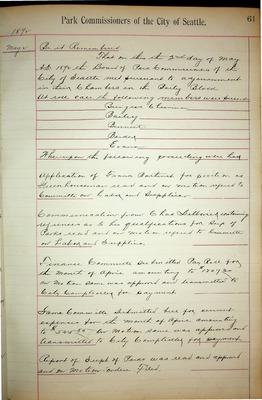 Park Commissioners of the City of Seattle. 61
1892
May 2 Be it Remembered
That on this the 2nd day of May
A.D. 1892 the Board of Park Commissioners of the
City of Seattle met pursuant to adjournment
in their Chambers in the Bailey Block
At roll call the following members were present
Evans
Whereupon the following proceedings were had
Application of for position as
read and on motion referred to
Committee on Labor and Supplies
Communication from Chas containing
references as to his qualifications for Supt of
Parks read and on motion referred to Committee
on Labor and Supplies.
Finance Committee submitted Pay Roll for
the month of April amounting to
on motion same was approved and transmitted to
City Comptroller for payment
Same Committee submitted bill for current
expenses for the month of April amounting
to on motion same was approved and
transmitted to City Comptroller for payment
Report of Supt of Parks was read and approved
and on motion orders filed.